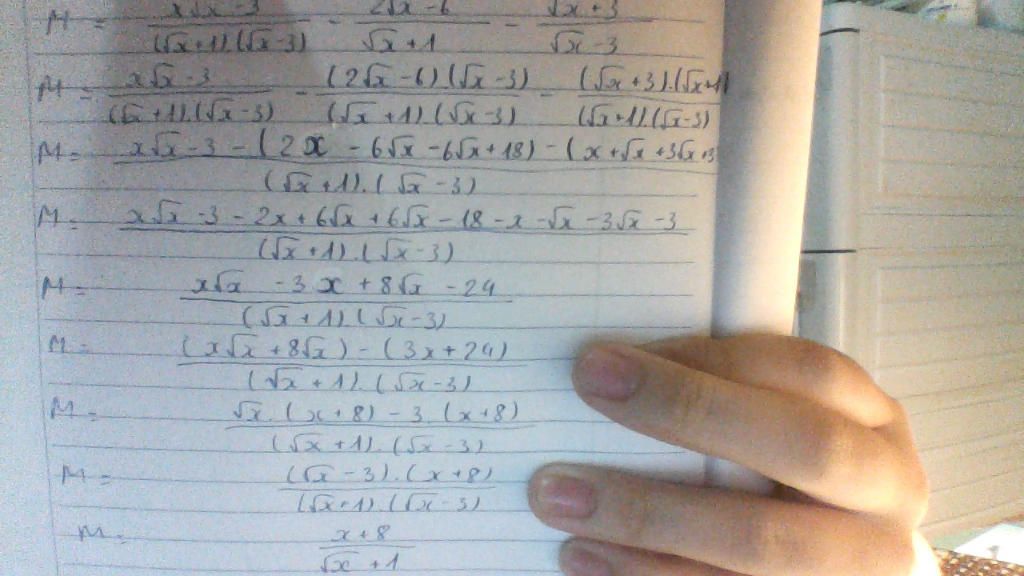 M = x√x - 3 / (√x+1).(√x-3) - 2√x - 6 / √x + 1 - √x + 3 / √x - 3
M = x√x - 3 / (√x+1).(√x-3) - (2√x - 6).(√x - 3) / (√x + 1).(√x - 3) - (√x + 3).(√x+1) / (√x+1).(√x-3)
M = x√x - 3 - (2x - 6√x - 6√x + 18) - (x + √x + 3√x + 3 / (√x + 1).(√x - 3)
M = x√x - 3 - 2x + 6√x + 6√x - 18 - x - √x - 3√x - 3 / (√x + 1).(√x - 3)
M = x√x - 3x + 8√x - 24 / (√x + 1).(√x - 3)
M = (x√x + 8√x) - (3x + 24) / (√x + 1).(√x - 3)
M = √x.(x + 8) - 3.(x + 8) / (√x + 1).(√x - 3)
M = (√x - 3).(x + 8) / (√x + 1).(√x - 3)
M = x + 8 / √x + 1